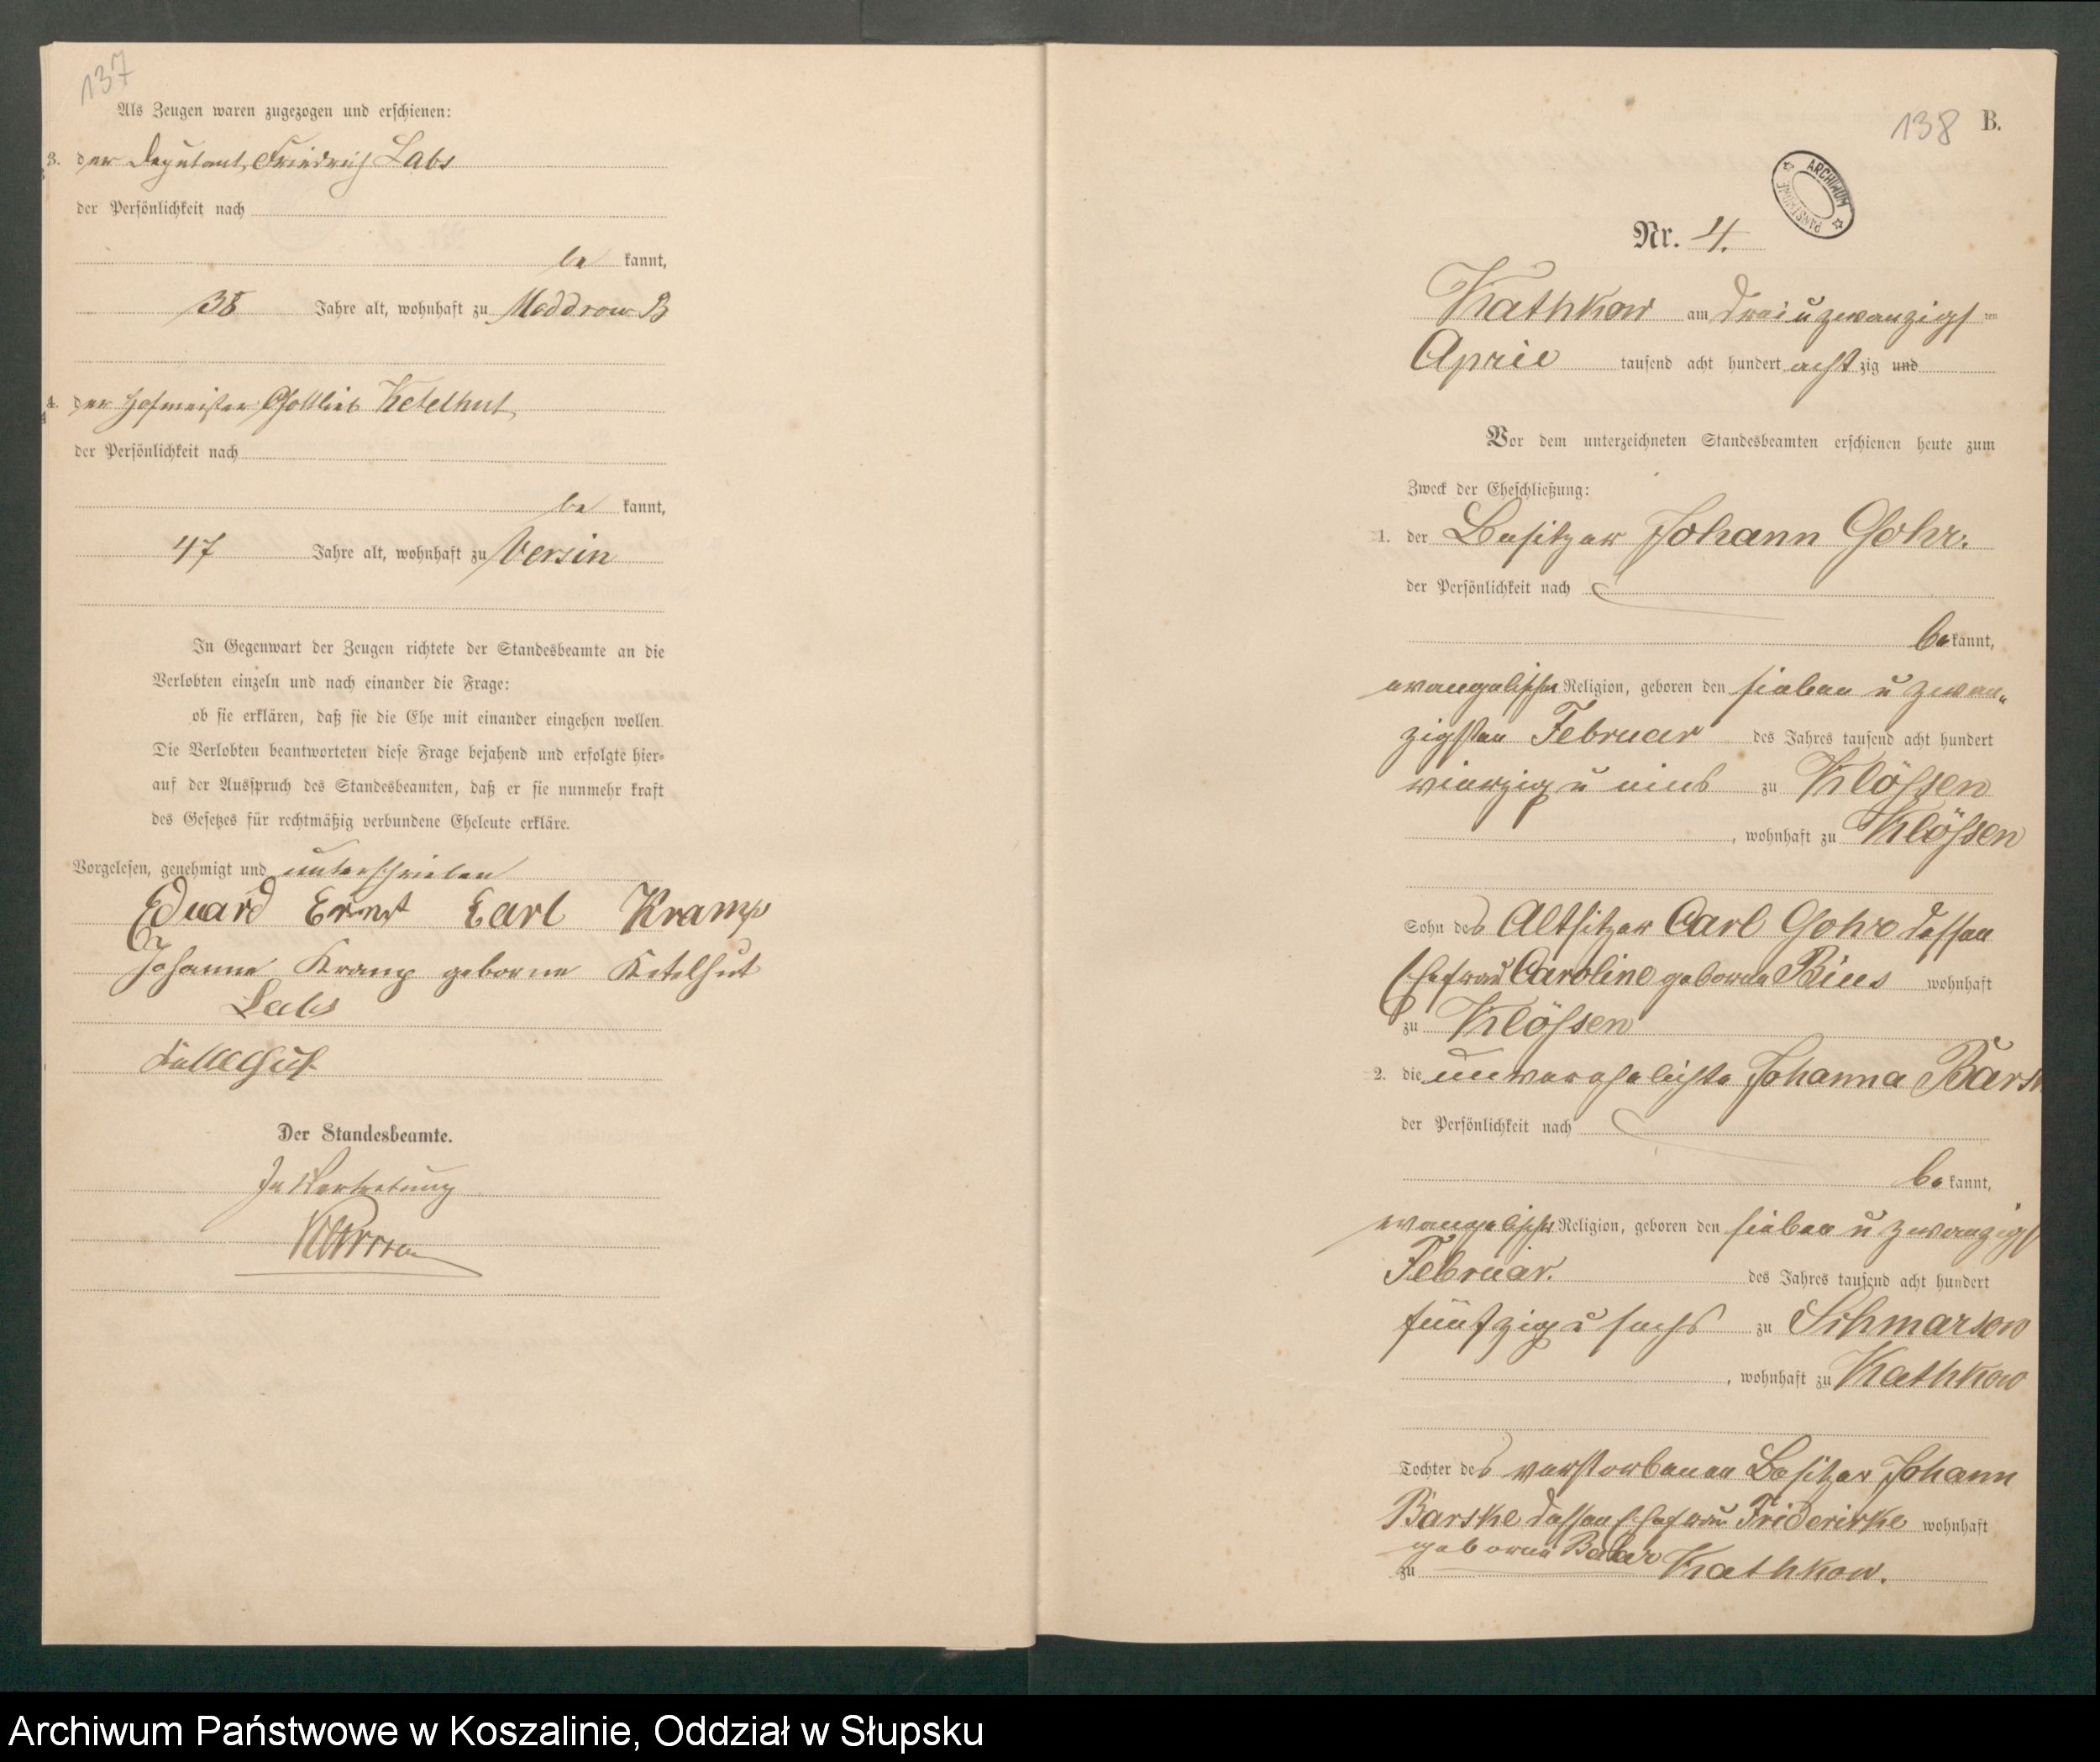 137
Als Zeugen waren zugezogen und erschienen:
3. der Deputant, Friedrich Labs
der Persönlichkeit nach
be kannt,
38 Jahre alt, wohnhaft zu Maddrow B
4. der Hofmeister Gottlieb Ketelhut,
der Persönlichkeit nach
be kannt,
47 Jahre alt, wohnhaft zu Versin
In Gegenwart der Zeugen richtete der Standesbeamte an die
Verlobten einzeln und nach einander die Frage:
ob sie erklären, daß sie die Ehe mit einander eingehen wollen.
Die Verlobten beantworteten diese Frage bejahend und erfolgte hier-
auf der Ausspruch des Standesbeamten, daß er sie nunmehr kraft
des Gesetzes für rechtmäßig verbundene Eheleute erkläre.
Vorgelesen, genehmigt und unterschrieben
Eduard Ernst Carl Kramp
Johanne Kramp geborne Ketelhut
Labs
Der Standesbeamte.
In Vertretung
138 B.
ARCHIWUM PAŃSTWOWE
Nr. 4.
Kathkow am drei u zwanzigs ten
April tausend acht hundert acht zig und
Vor dem unterzeichneten Standesbeamten erschienen heute zum
Zweck der Eheschließung:
1. der Besitzer Johann Gohr.
der Persönlichkeit nach
be kannt,
evangelischer Religion, geboren den sieben u zwan-
zigsten Februar des Jahres tausend acht hundert
vierzig u eins zu Klößen
, wohnhaft zu Klößen
Sohn des Altsitzer Carl Gohr dessen
Ehefrau Caroline geborne wohnhaft
zu Klößen
2. die unverehelichte Johanna
der Persönlichkeit nach
be kannt,
evangelischer Religion, geboren den sieben u zwanzigs
Februar. des Jahres tausend acht hundert
fünfzig u sechs zu Schmarsow
, wohnhaft zu Kathkow
Tochter des verstorbenen Besitzer Johann
Barske dessen Ehefrau Friderirke wohnhaft
geborne
zu Kathkow.
Archiwum Państwowe w Koszalinie, Oddział w Słupsku